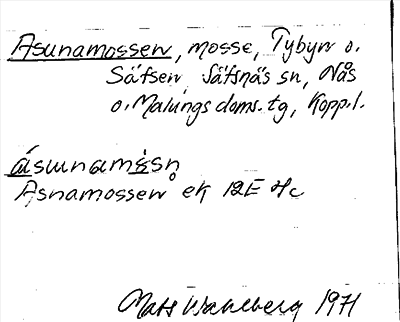 Asunamossen, mosse, Tybyn o.
Säfsen, Säfsnäs sn, Nås
o. Malungs doms. tg, Kopp. l.
Asnamossen ek 12E Hc
Mats Wahlberg 1971